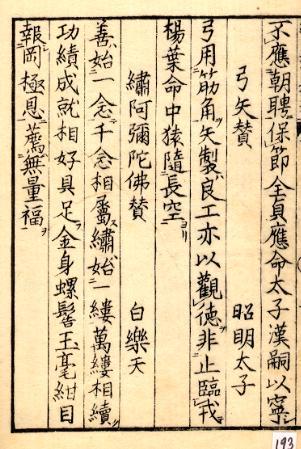 不應朝聘保節全眞應命太子漢嗣以寧
弓矢賛　昭明太子
弓用筋角矢製良工亦以觀德非止臨戎
楊葉命中猿隨長空
繡阿彌陀佛賛　白樂天
善始一念千念相屬繡始一縷萬縷相續
功績成就相好具足金身螺髻玉毫紺目
報罔極恩薦無量福
193